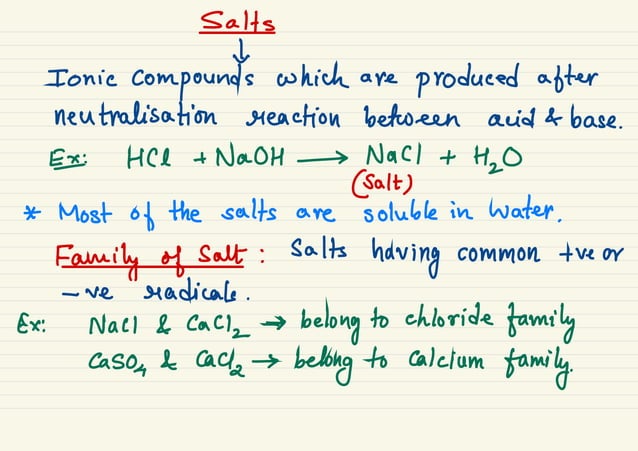 Salts
↓
Ionic compounds which are produced after
neutralisation reaction between acid & base.
Ex: HCl + NaOH → NaCl + H₂O
(Salt)
* Most of the salts are soluble in water.
Family of Salt : Salts having common +ve or
-ve radicals.
Ex: NaCl & CaCl₂ → belong to chloride family
CaSO₄ & CaCl₂ → belong to Calcium family.